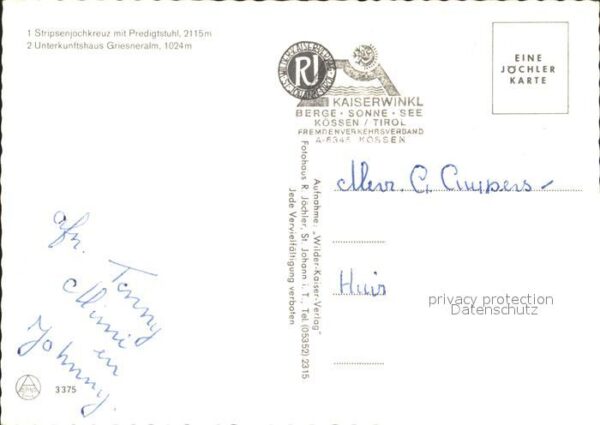 1 Stripsenjochkreuz mit Predigtstuhl, 2115m
2 Unterkunftshaus Griesneralm, 1024m
RJ
KAISERWINKL
BERGE · SONNE · SEE
KÖSSEN / TIROL
FREMDENVERKEHRSVERBAND
A-6345 KÖSSEN
EINE
JÖCHLER
KARTE
Aufnahme: „Wilder-Kaiser-Verlag"
Fotohaus R. Jöchler, St. Johann i. T., Tel. (05352) 2315
Jede Vervielfältigung verboten
Mevr. C. Cuypers -
Huis
afz. Tonny
Mimi
en
Johnny.
3375
privacy protection
Datenschutz